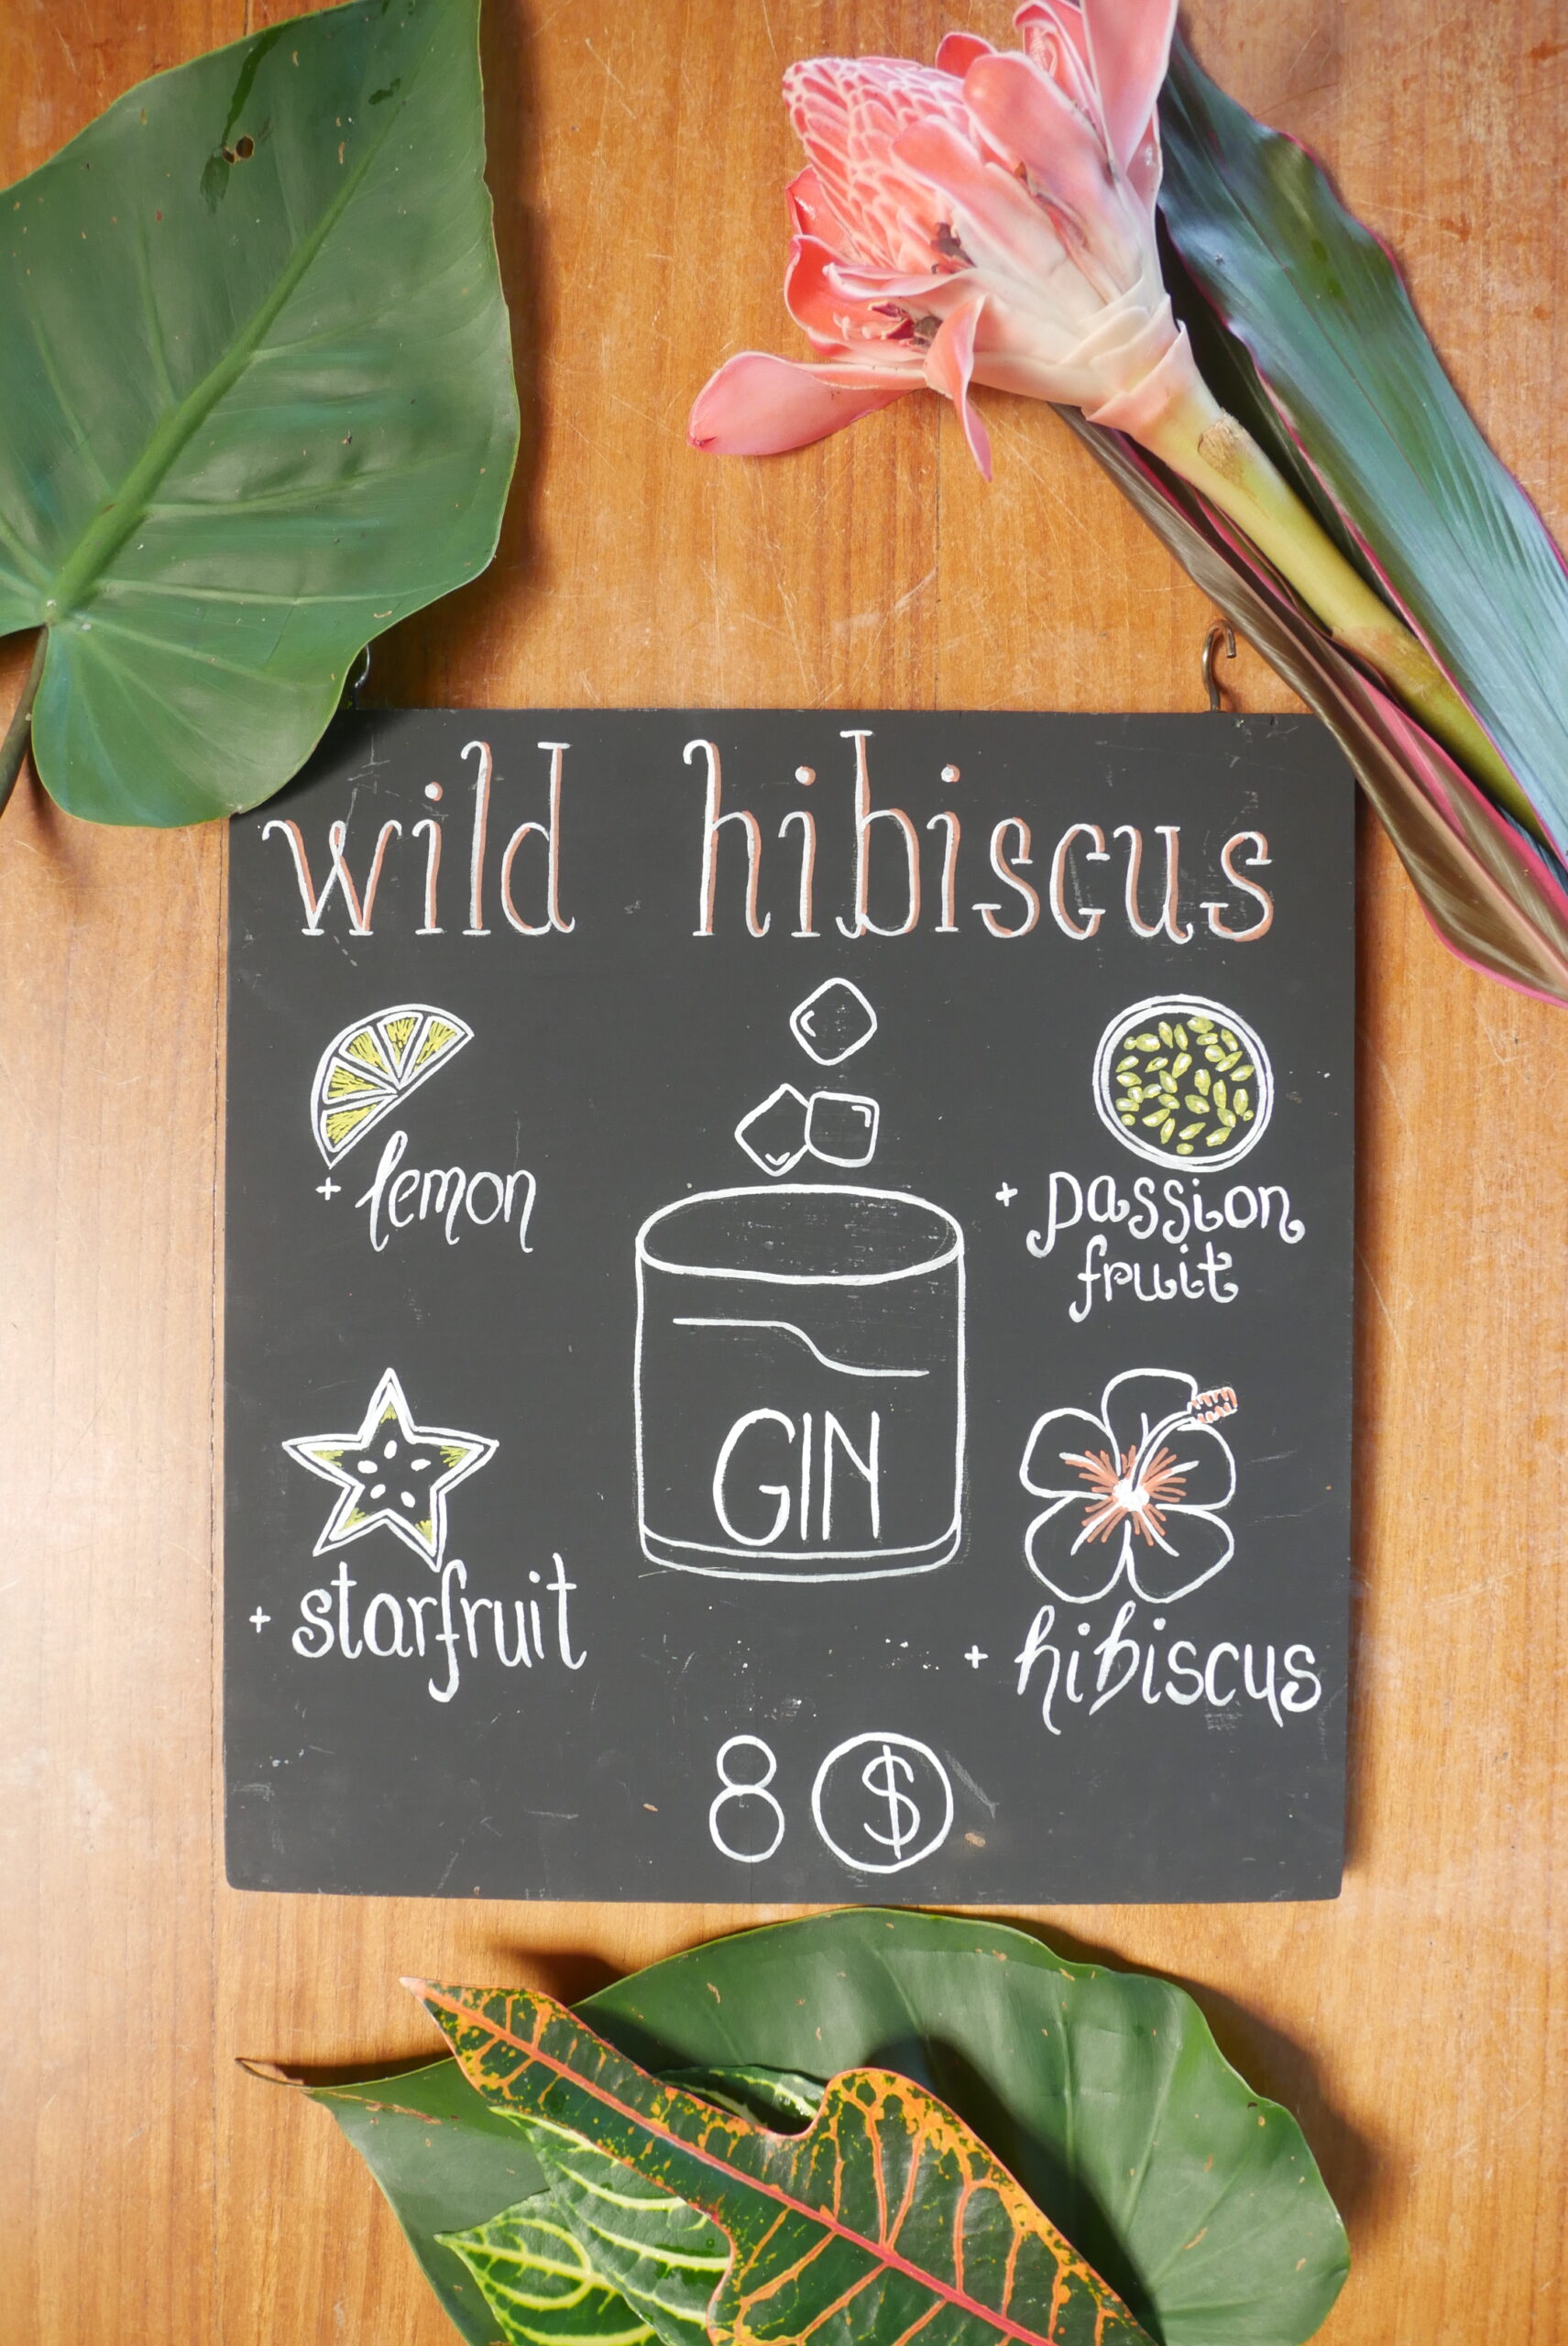 wild hibiscus
+ lemon
+ passion
fruit
GIN
+ starfruit
+ hibiscus
8 $